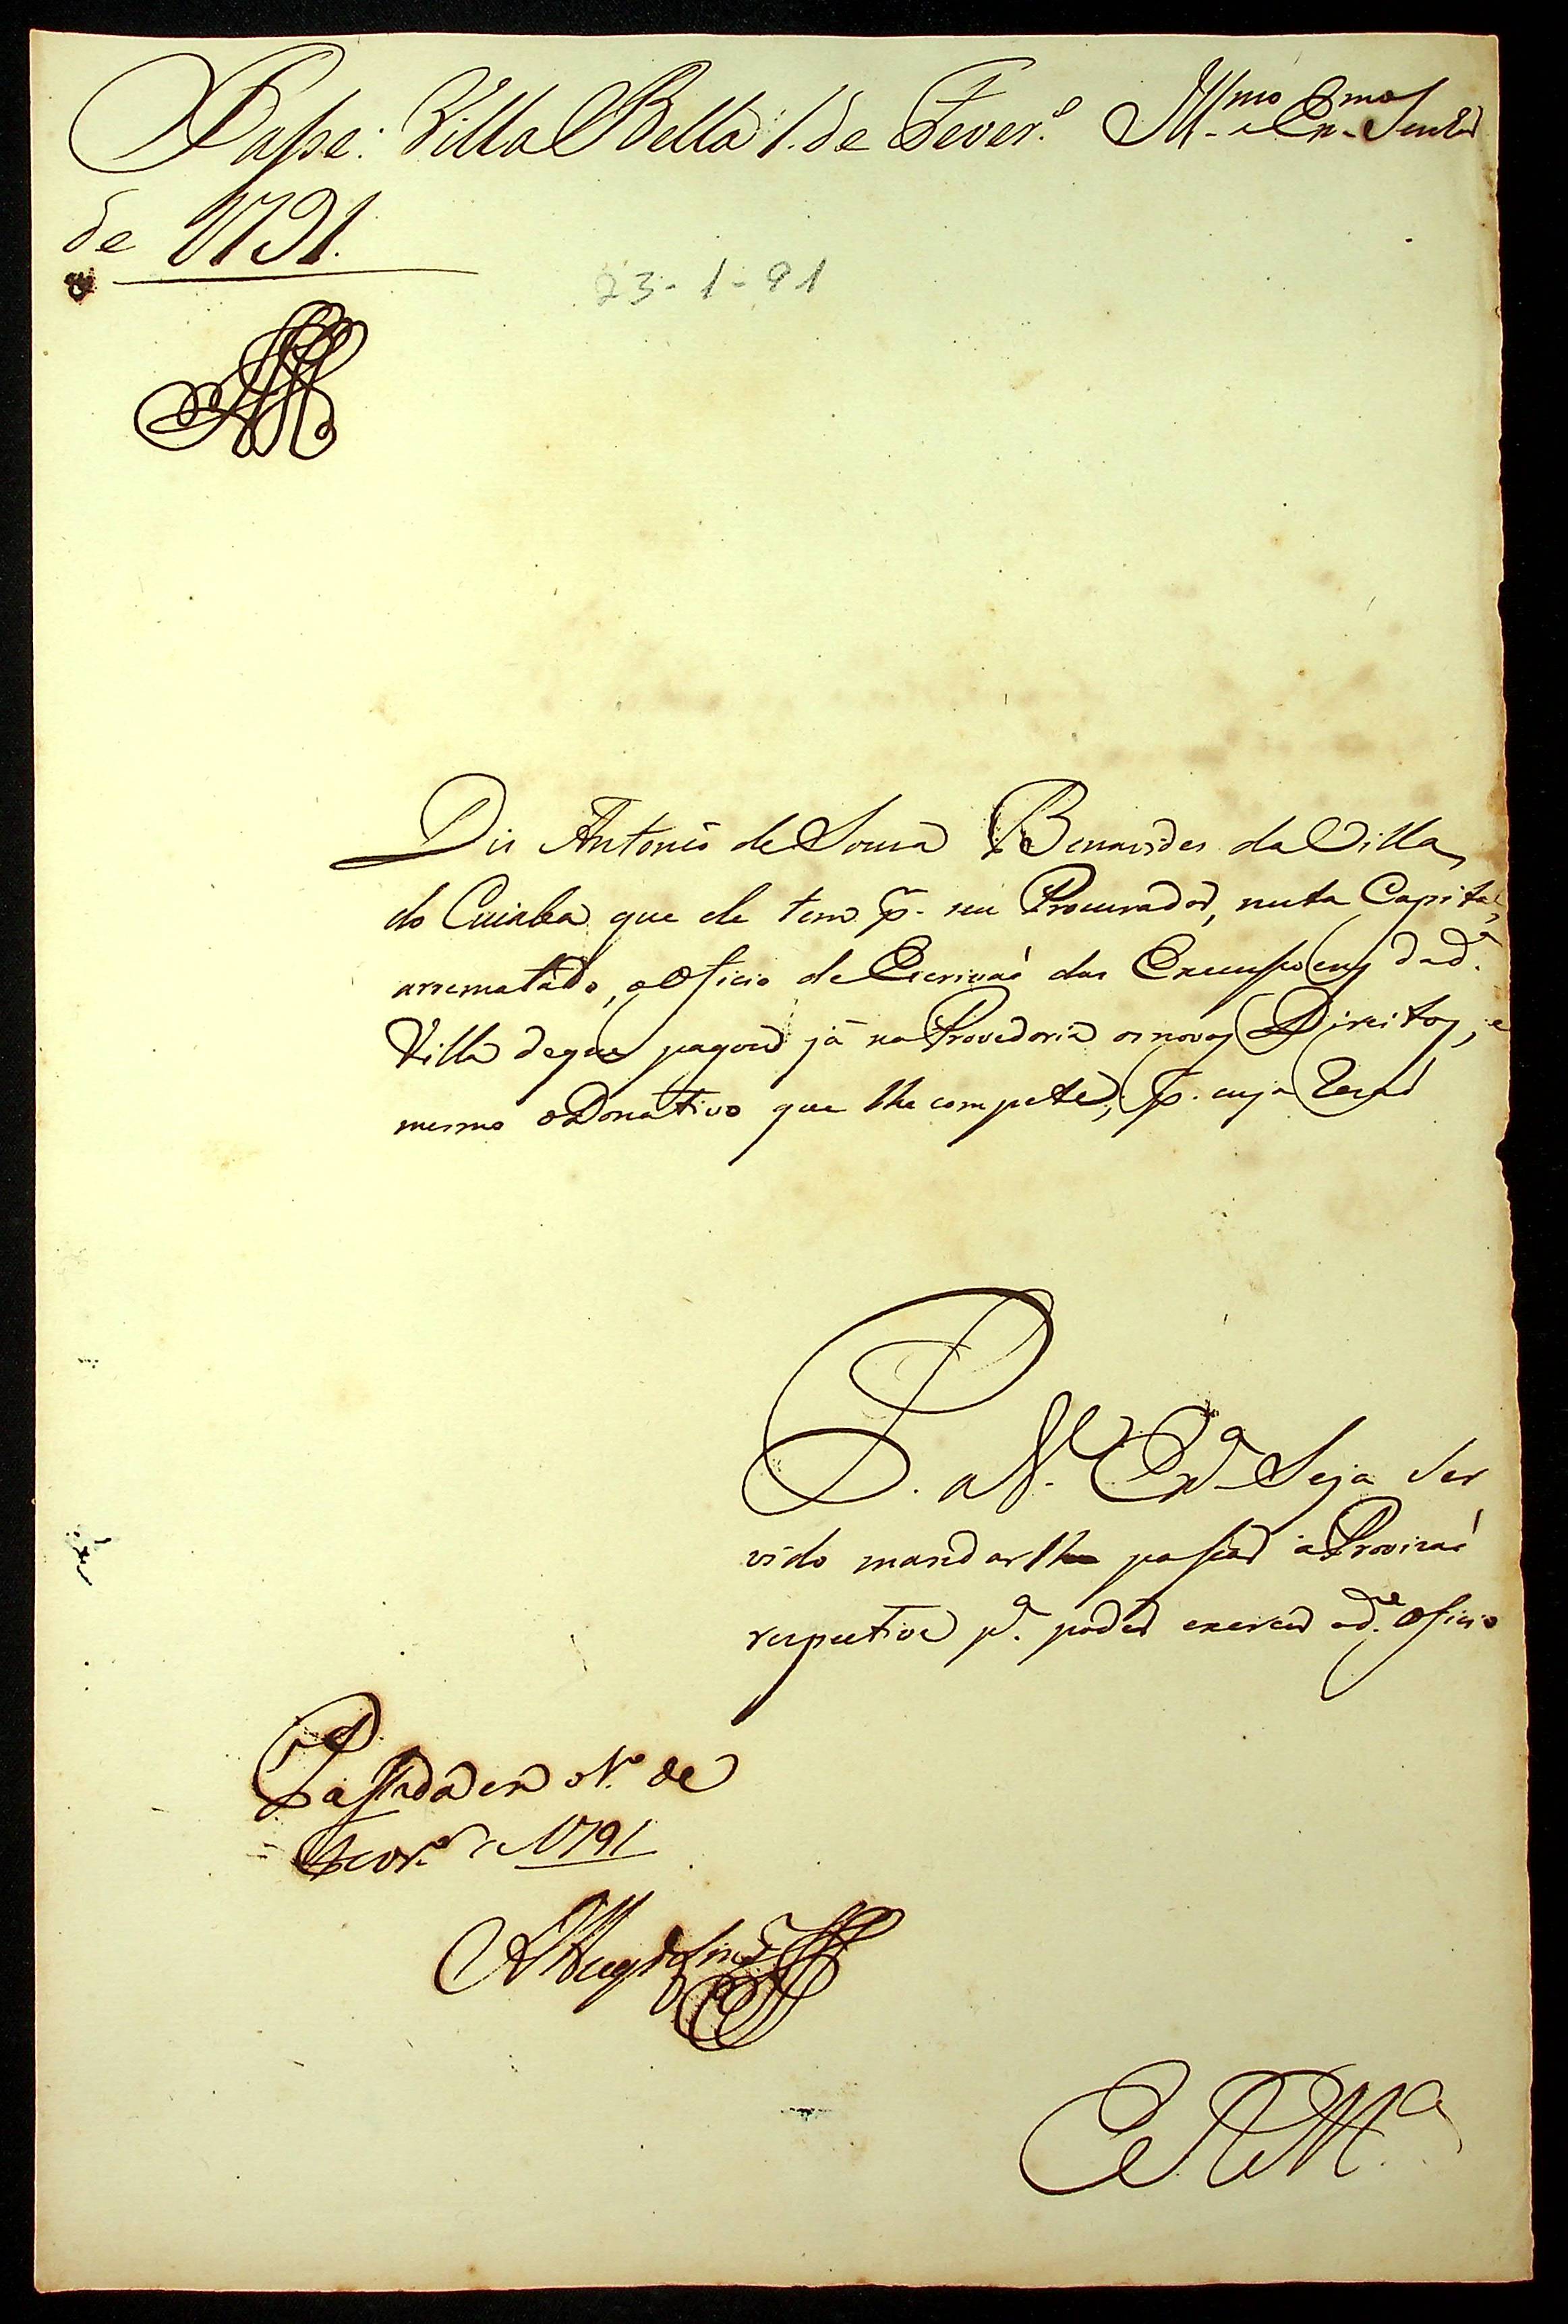 Passe. Villa Bella 1. de Fever.º
de 1791.
Ill.mo e Ex.mo Senhor
23-1-91
Diz Antonio de Souza Benavides da Villa
do Cuiaba que ele tem p. seu Procurador, nesta Capital,
arrematado, o Oficio de Escrivaõ das Execusoens da d.ª
Villa de que pagou já na Provedoria os novos Direitos, e
mesmo o Donativo que lhe compete, p. cuja Rezaõ
P. a V. Ex.ª Seja Ser
vido mandar lhe passar a Provizaõ
respectiva p.ª poder exercer o d.º Oficio
Passada em de
Fevr.º 1791
E. R. M.ce